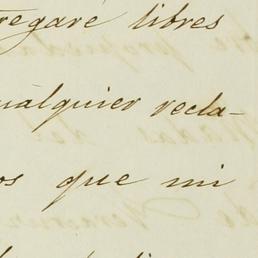 tregaré libres
ualquier recla-
os que mi